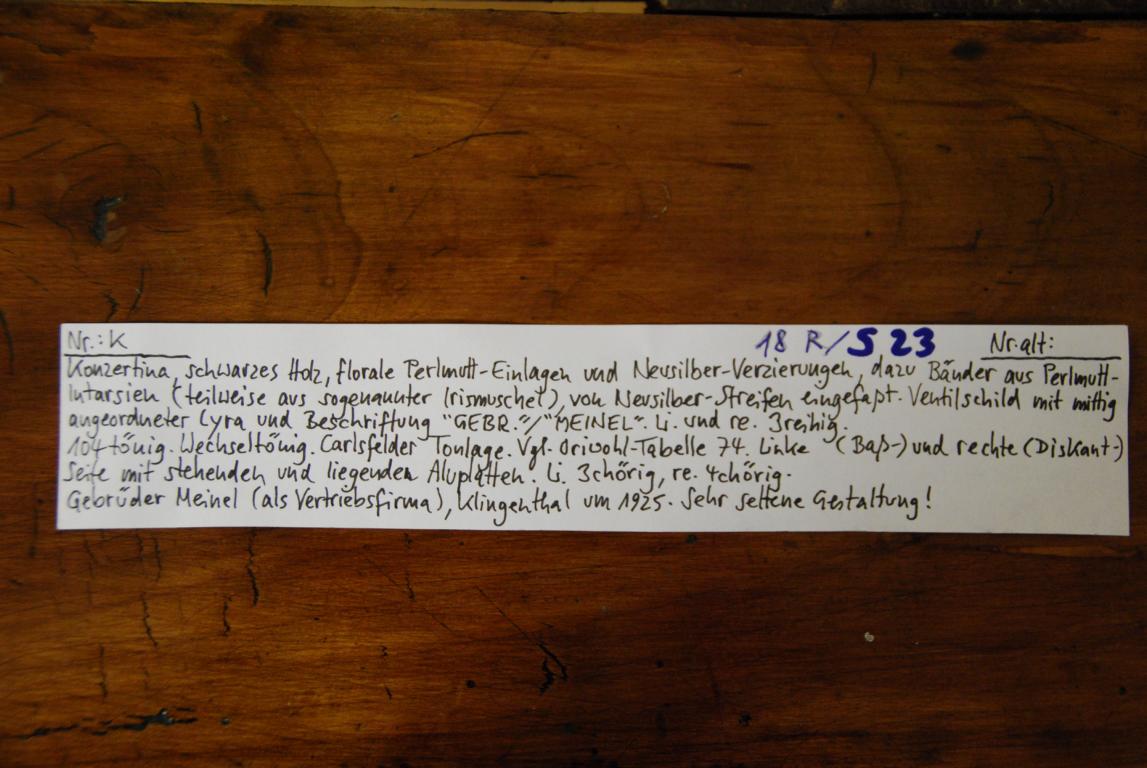 Nr.: K 18 R/S 23 Nr. alt:
Konzertina, schwarzes Holz, florale Perlmutt-Einlagen und Neusilber-Verzierungen, dazu Bänder aus Perlmutt-
Intarsien (teilweise aus sogenannter Irismuschel), von Neusilber-Streifen eingefaßt. Ventilschild mit mittig
angeordneter Lyra und Beschriftung "GEBR."/"MEINEL". Li. und re. 3reihig.
104tönig. Wechseltönig. Carlsfelder Tonlage. Vgl. Oriwohl-Tabelle 74. Linke (Baß-) und rechte (Diskant-)
Seite mit stehenden und liegenden Aluplatten. Li. 3chörig, re. 4chörig.
Gebrüder Meinel (als Vertriebsfirma), Klingenthal um 1925. Sehr seltene Gestaltung!